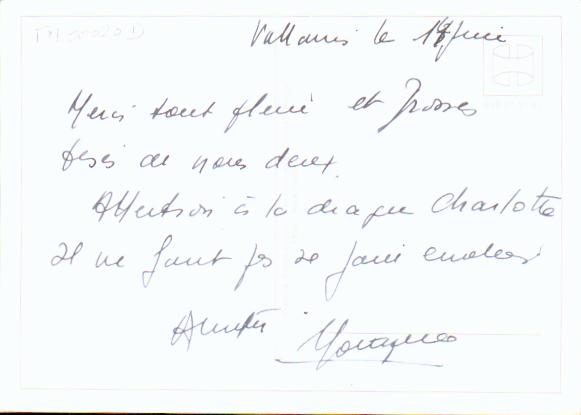 TM 00020 D
Vallauris le 18 juin
Merci tout fleuri et grosses
bises de nous deux.
Attention à la drague Charlotte
Il ne faut pas se faire